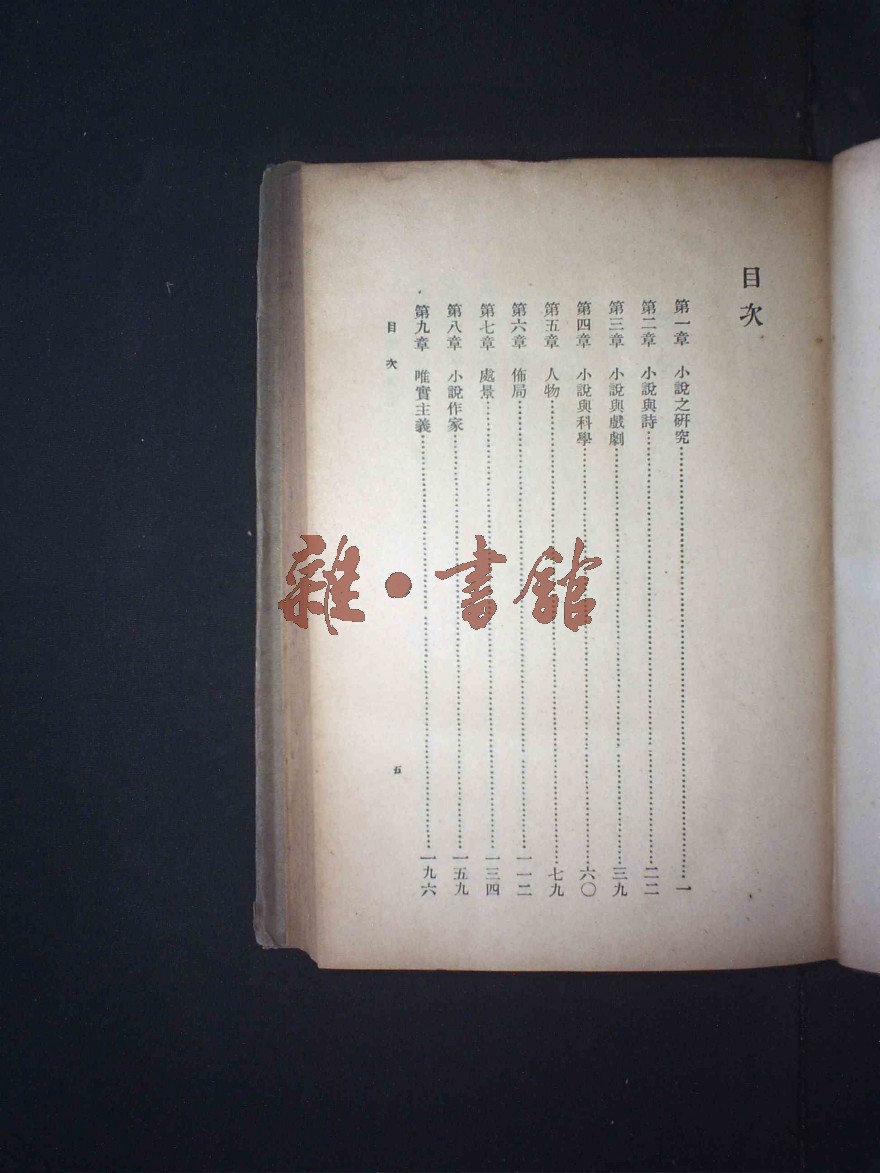 目次
第一章 小說之硏究……………………一
第二章 小說與詩……………………二二
第三章 小說與戲劇……………………三九
第四章 小說與科學……………………六〇
第五章 人物……………………七九
第六章 佈局……………………一一二
第七章 處景……………………一三四
第八章 小說作家……………………一五九
第九章 唯實主義……………………一九六
目次
五
雜·書館